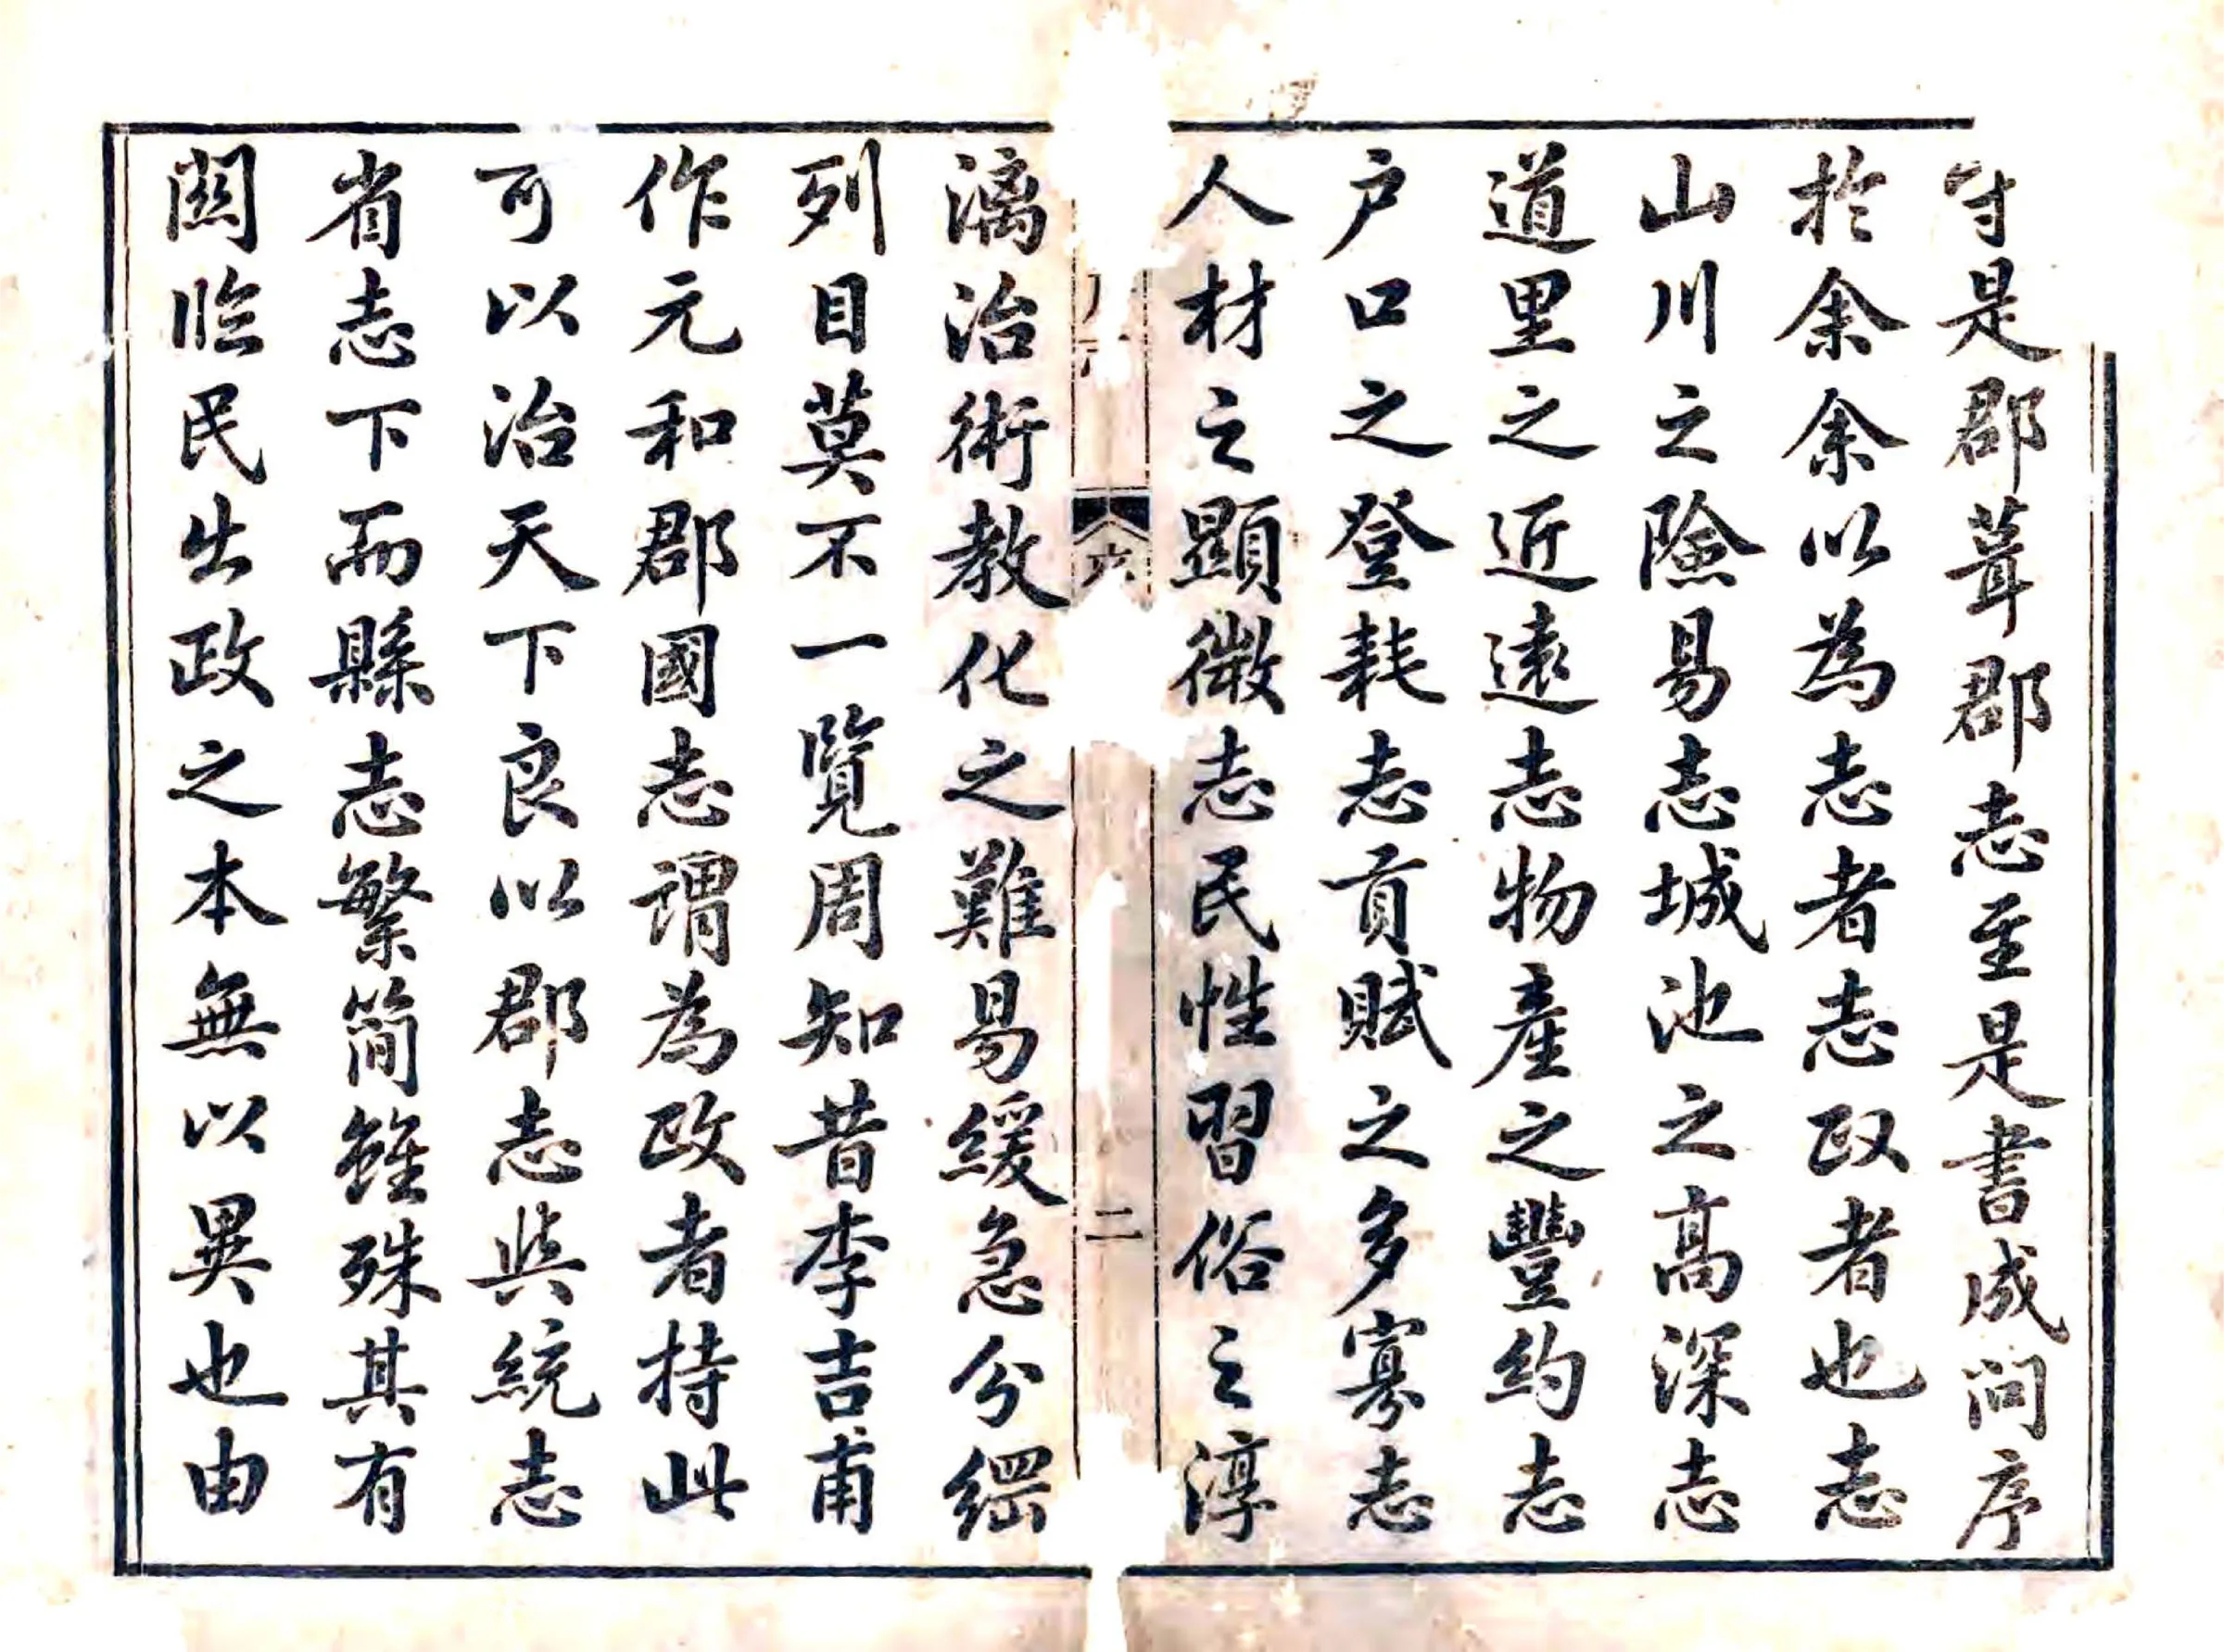 守是郡葺郡志至是書成問序
於余余以為志者志政者也志
山川之險易志城池之高深志
道里之近遠志物產之豐約志
戶口之登耗志貢賦之多寡志
人材之顯微志民性習俗之淳
六
二
漓治術教化之難易緩急分綱
列目莫不一覽周知昔李吉甫
作元和郡國志謂為政者持此
可以治天下良以郡志與統志
省志下而縣志繁簡雖殊其有
關臨民出政之本無以異也由